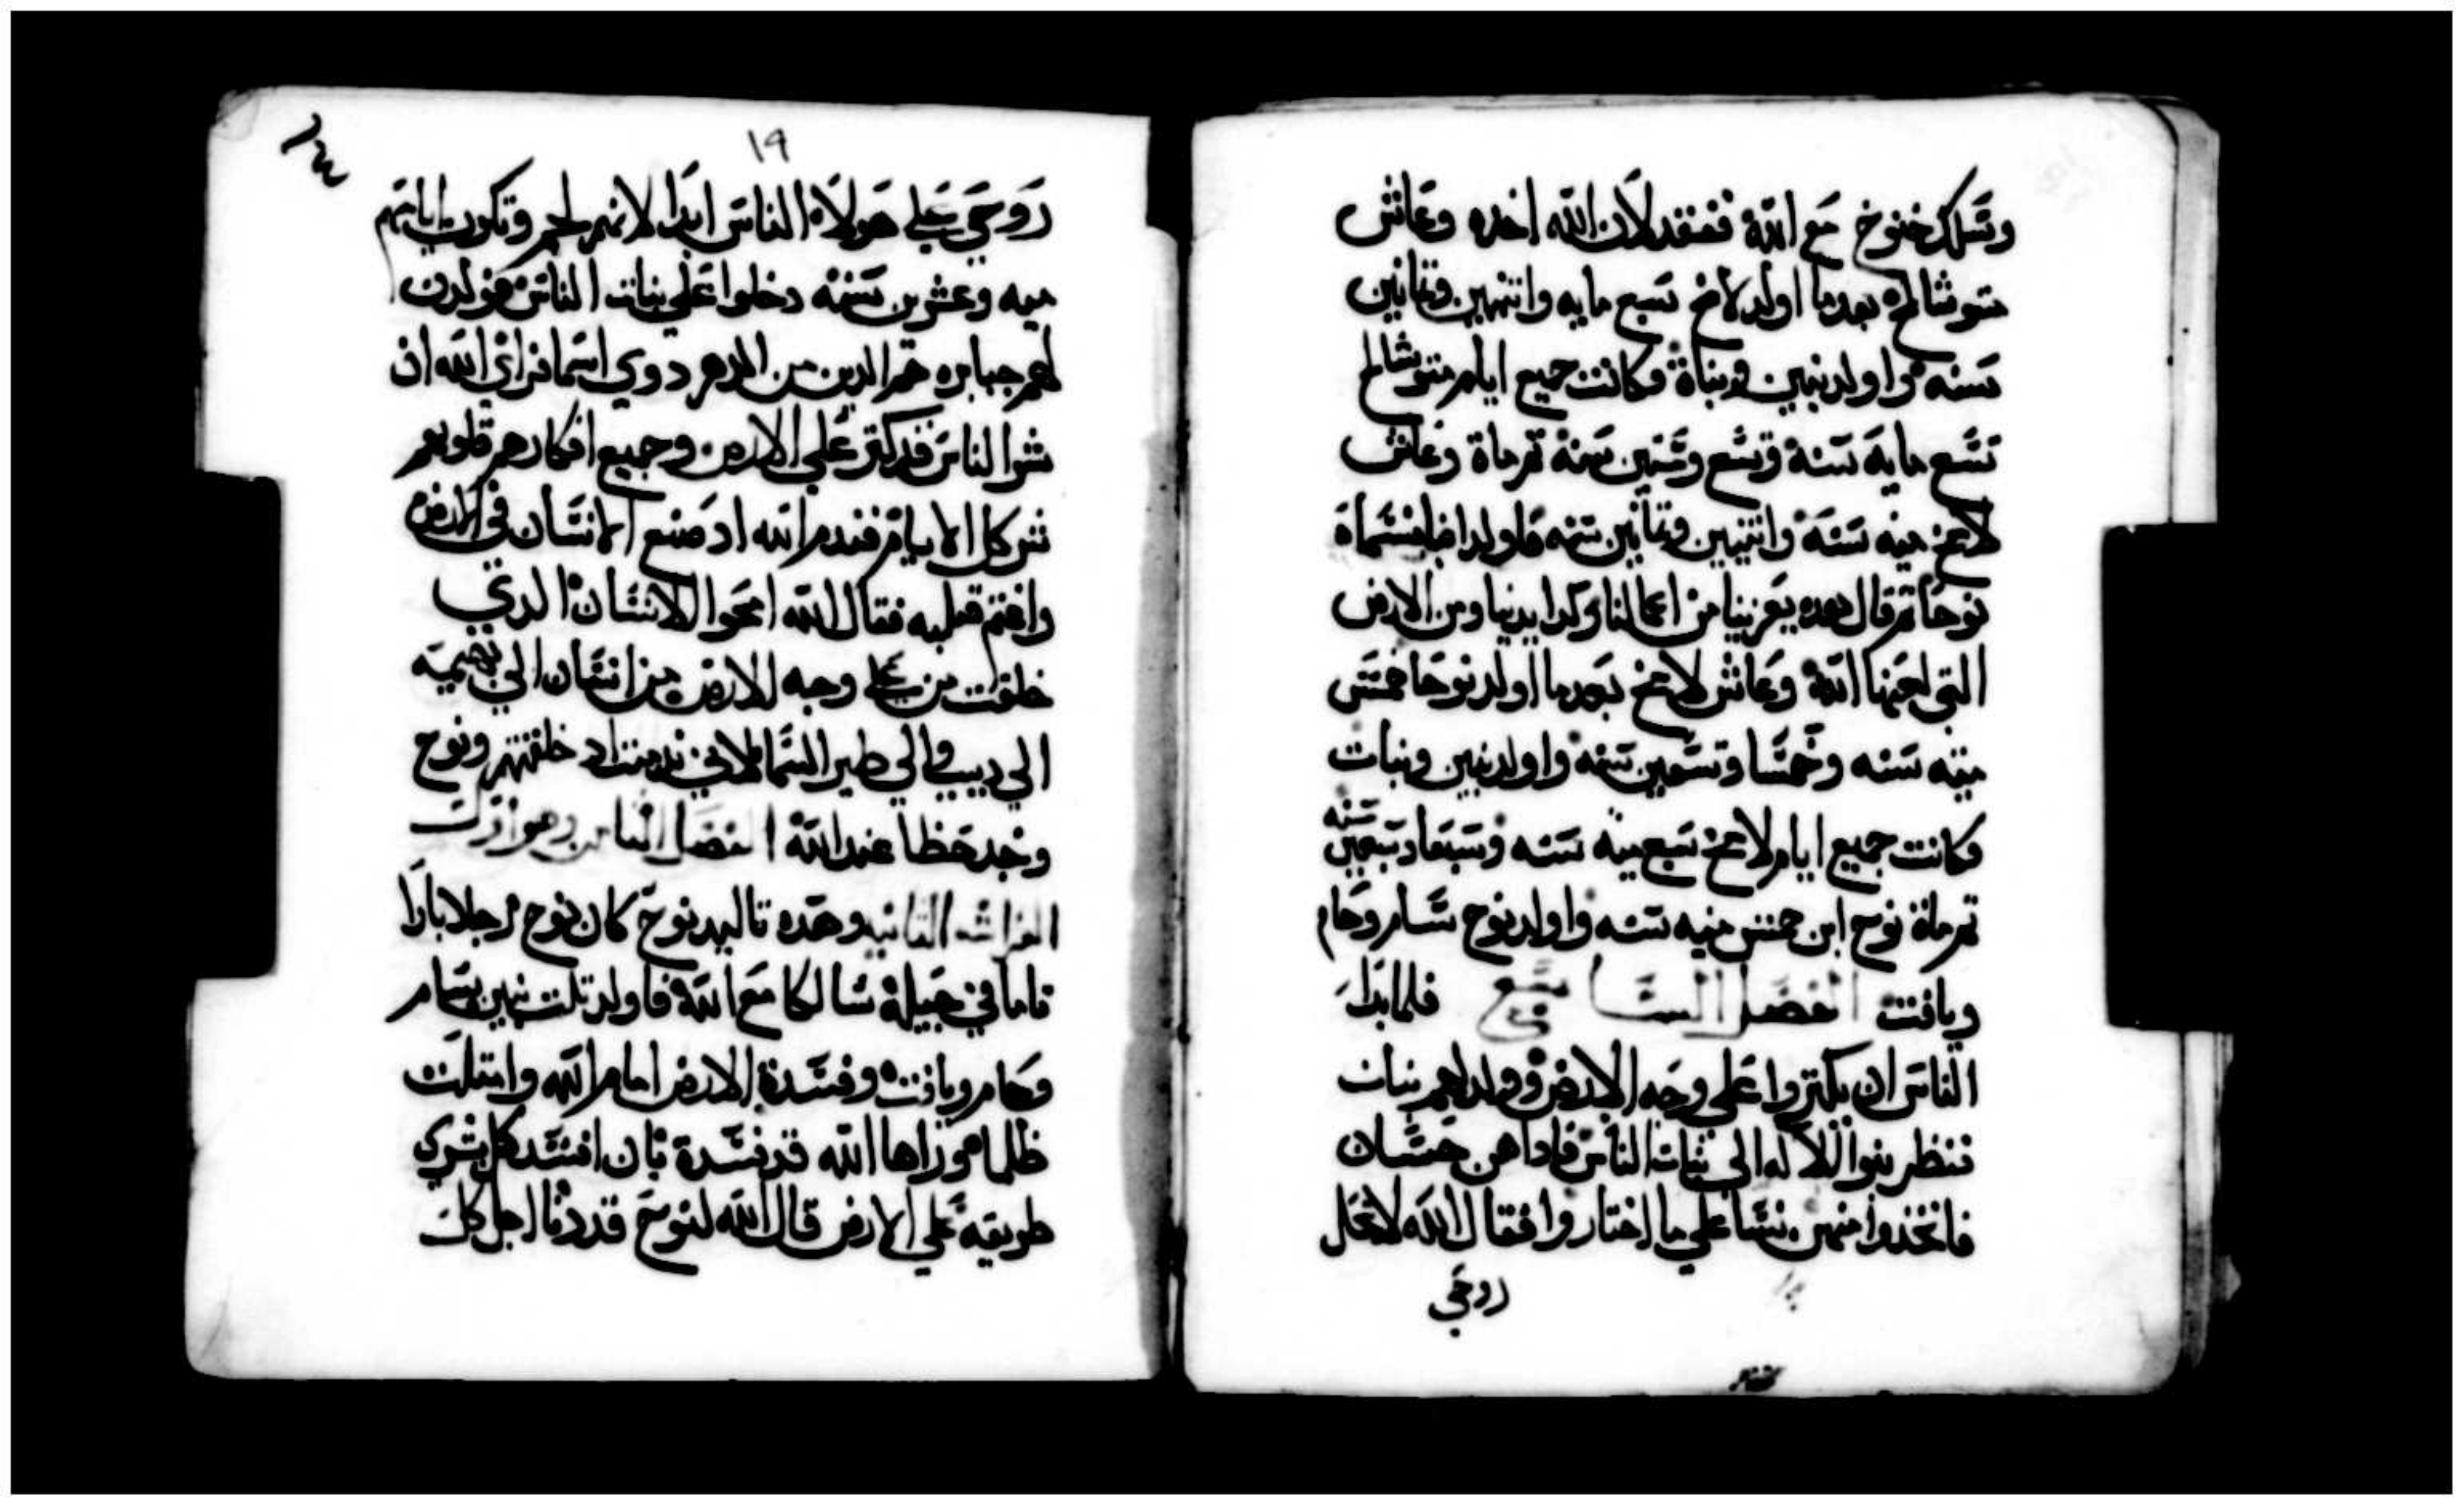 وسلك خنوخ مع الله ففقد لان الله اخده وعاش
متوشالح بعدما اولد لامخ سبع مايه واتنين وتمانين
سنه واولد بنين وبناة فكانت جميع ايام متوشالح
تسع مايه سنة وتسع وستين سنة تم ماة وعاش
لامخ ميه سنة واتنيين وتمانين سنه فاولد ابنا فسماة
نوحا تم قال هده يعزينا من اعمالنا وكد ايدينا ومن الارض
التي لعنها الله وعاش لامخ بعدما اولد نوحا خمس
ميه سنه وخمسا وتسعين سنه واولد بنين وبنات
فكانت جميع ايام لامخ سبع ميه سنه وسبعا وسبعين سنه
تم ماة نوح ابن خمس ميه سنه واولد نوح سام وحام
ويافت الفصل السابع فلما بدا
الناس ان يكتروا على وجه الارض وولد لهم بنات
فنظر بنوا الاله الى بنات الناس فادا هن حسان
فاتخدوا منهن نسا علي ما اختاروا فقال الله لا تحل
روحي
١٩
روحي علي هولاه الناس ابدا لانهم لحم وتكون ايامهم
ميه وعشرين سنه دخلوا علي بنات الناس فولدن
لهم جبابره هم الدين من الدهر دوي اسما فراي الله ان
شر الناس قد كتر علي الارض وجميع افكارهم قلوبهم
شر كل الايام فندم الله اد صنع الانسان في الارض
واغتم قلبه فقال الله امحوا الانسان الدي
خلقت من علي وجه الارض من انسان الي بهيميه
الي دبيب والي طير السما لاني ندمت اد خلقتهم ونوح
وجد حظا عند الله الفصل التامن وهو اول
الفراشه التانيه وهده تاليد نوح كان نوح رجلا بارا
تاما في جيله سالكا مع الله فاولد تلت بنين سام
وحام ويافت وفسدة الارض امام الله وامتلت
ظلما وراها الله قد فسدة بان افسد كل بشري
طريقه علي الارض قال الله لنوح قد دنا اجل كل